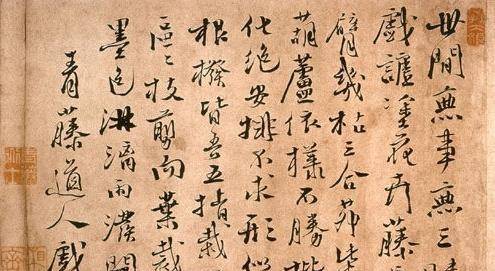 世間無事無三
戲謔塗花卉藤
臂幾枯三合茅柴
葫蘆依樣不勝揩
化絕安排不求形似
根撥皆吾五指栽
區〻枝剪而葉裁
墨色淋漓雨潑開
青藤道人戲